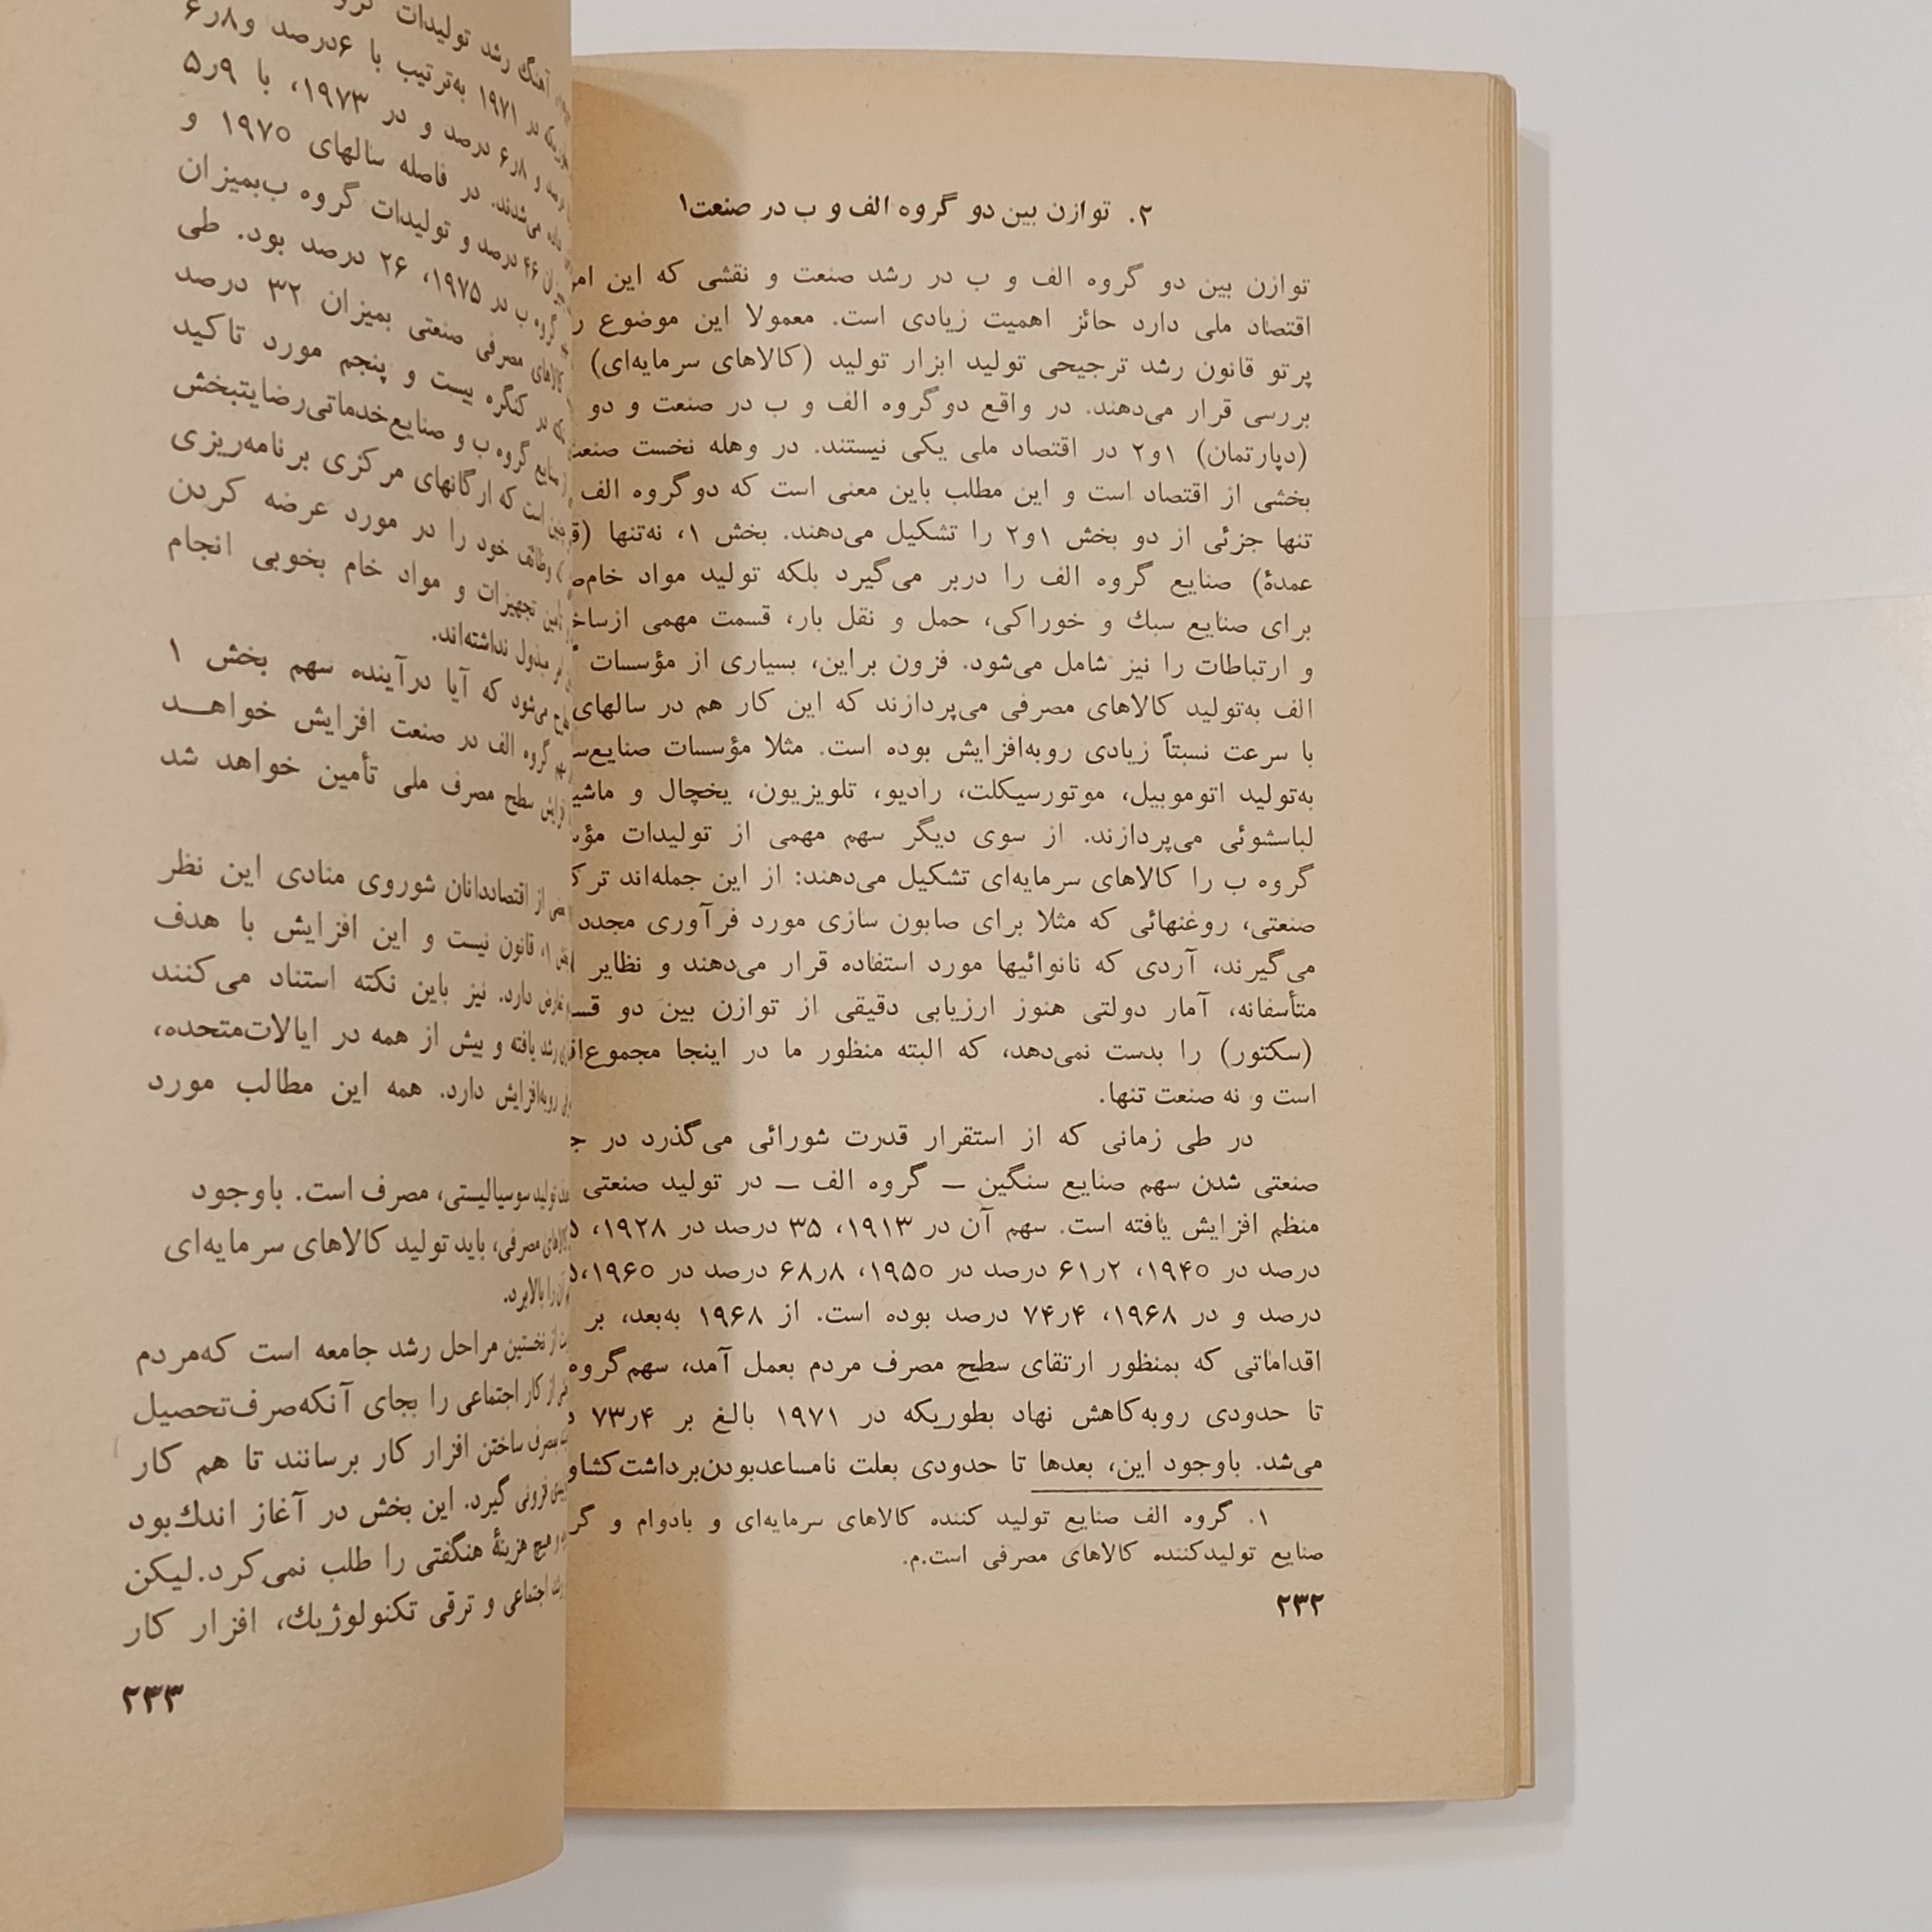 ۲. توازن بین دو گروه الف و ب در صنعت۱
توازن بین دو گروه الف و ب در رشد صنعت و نقشی که این امر
اقتصاد ملی دارد حائز اهمیت زیادی است. معمولا این موضوع
پرتو قانون رشد ترجیحی تولید ابزار تولید (کالاهای سرمایه‌ای)
بررسی قرار می‌دهند. در واقع دو گروه الف و ب در صنعت و دو
(دپارتمان) ۱و۲ در اقتصاد ملی یکی نیستند. در وهله نخست
بخشی از اقتصاد است و این مطلب باین معنی است که دو گروه الف
تنها جزئی از دو بخش ۱و۲ را تشکیل می‌دهند. بخش ۱، نه‌تنها
عمدهٔ) صنایع گروه الف را دربر می‌گیرد بلکه تولید مواد
برای صنایع سبك و خوراکی، حمل و نقل بار، قسمت مهمی
و ارتباطات را نیز شامل می‌شود. فزون براین، بسیاری از مؤسسات
الف به‌تولید کالاهای مصرفی می‌پردازند که این کار هم در سالهای
با سرعت نسبتاً زیادی روبه‌افزایش بوده است. مثلا مؤسسات
به‌تولید اتوموبیل، موتورسیکلت، رادیو، تلویزیون، یخچال و
لباسشوئی می‌پردازند. از سوی دیگر سهم مهمی از تولیدات
گروه ب را کالاهای سرمایه‌ای تشکیل می‌دهند: از این جمله‌اند
صنعتی، روغنهائی که مثلا برای صابون سازی مورد فرآوری مجدد
می‌گیرند، آردی که نانوائیها مورد استفاده قرار می‌دهند و نظایر
متأسفانه، آمار دولتی هنوز ارزیابی دقیقی از توازن بین دو
(سکتور) را بدست نمی‌دهد، که البته منظور ما در اینجا
است و نه صنعت تنها.
در طی زمانی که از استقرار قدرت شورائی می‌گذرد در
صنعتی شدن سهم صنایع سنگین — گروه الف — در تولید صنعتی
منظم افزایش یافته است. سهم آن در ۱۹۱۳، ۳۵ درصد در ۱۹۲۸،
درصد در ۱۹۴۰، ۶۱٫۲ درصد در ۱۹۵۰، ۶۸٫۸ درصد در ۱۹۶۰،
درصد و در ۱۹۶۸، ۷۴٫۴ درصد بوده است. از ۱۹۶۸ به‌بعد، بر
اقداماتی که بمنظور ارتقای سطح مصرف مردم بعمل آمد، سهم گروه
تا حدودی روبه‌کاهش نهاد بطوریکه در ۱۹۷۱ بالغ بر ۷۳٫۴
می‌شد. باوجود این، بعدها تا حدودی بعلت نامساعدبودن‌برداشت
۱. گروه الف صنایع تولید کننده کالاهای سرمایه‌ای و بادوام و
صنایع تولیدکننده کالاهای مصرفی است.م.
۲۳۲
آهنگ رشد تولیدات
در ۱۹۷۱ به‌ترتیب با ۶درصد و ۶٫۸
و ۶٫۸ درصد و در ۱۹۷۳، با ۵٫۹
می‌شدند. در فاصله سالهای ۱۹۷۰ و
۴۶ درصد و تولیدات گروه ب‌بمیزان
گروه ب در ۱۹۷۵، ۲۶ درصد بود. طی
کالاهای مصرفی صنعتی بمیزان ۳۲ درصد
در کنگره بیست و پنجم مورد تاکید
صنایع گروه ب و صنایع‌خدماتی‌رضایتبخش
است که ارگانهای مرکزی برنامه‌ریزی
وظائف خود را در مورد عرضه کردن
تجهیزات و مواد خام بخوبی انجام
مبذول نداشته‌اند.
می‌شود که آیا درآینده سهم بخش ۱
گروه الف در صنعت افزایش خواهد
افزایش سطح مصرف ملی تأمین خواهد شد
از اقتصاددانان شوروی منادی این نظر
۱، قانون نیست و این افزایش با هدف
دارد. نیز باین نکته استناد می‌کنند
رشد یافته و بیش از همه در ایالات‌متحده،
روبه‌افزایش دارد. همه این مطالب مورد
تولید سوسیالیستی، مصرف است. باوجود
مصرفی، باید تولید کالاهای سرمایه‌ای
آن را بالابرد.
از نخستین مراحل رشد جامعه است که‌مردم
از کار اجتماعی را بجای آنکه‌صرف‌تحصیل
بمصرف ساختن افزار کار برسانند تا هم کار
فزونی گیرد. این بخش در آغاز اندك‌بود
و هیچ هزینهٔ هنگفتی را طلب نمی‌کرد.لیکن
اجتماعی و ترقی تکنولوژیك، افزار کار
۲۳۳